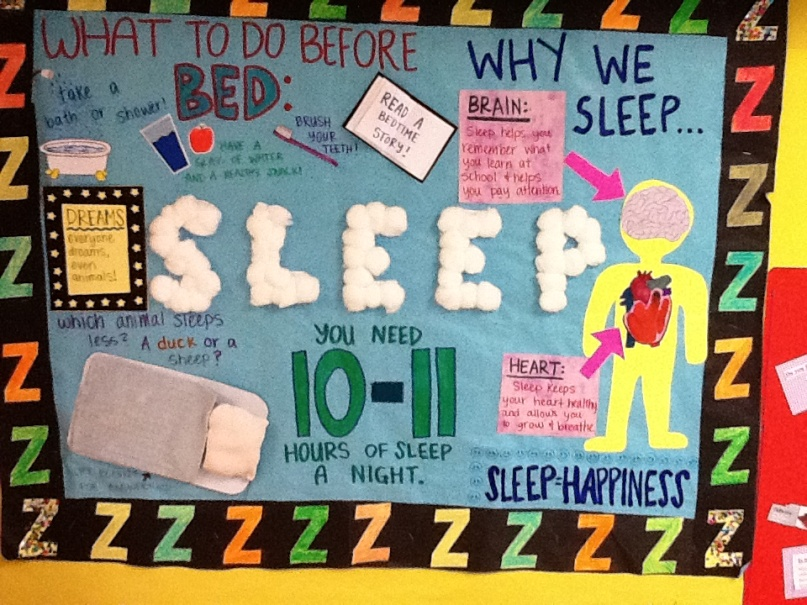 WHAT TO DO BEFORE
BED:
take a
bath or shower!
HAVE A
GLASS OF WATER
AND A HEALTHY SNACK!
BRUSH
YOUR
TEETH!
READ A
BEDTIME
STORY!
WHY WE
SLEEP...
BRAIN:
Sleep helps you
remember what
you learn at
school & helps
you pay attention
DREAMS
everyone
dreams,
even
animals!
SLEEP
which animal sleeps
less? A duck or a
sheep?
YOU NEED
10-11
HOURS OF SLEEP
A NIGHT.
HEART:
Sleep keeps
your heart healthy
and allows you
to grow & breathe
SLEEP=HAPPINESS
Z Z Z Z Z Z Z Z Z Z Z